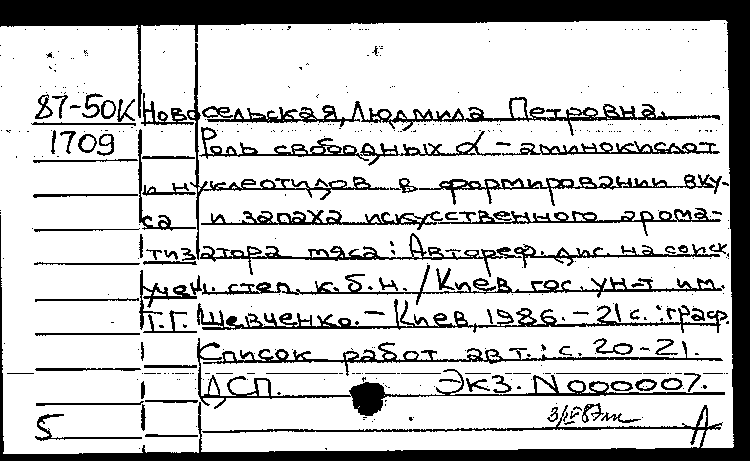 87-50К Новосельская, Людмила Петровна.
1709 Роль свободных α - аминокислот
и нуклеотидов в формировании вку-
са и запаха искусственного арома-
тизатора мяса: Автореф. дис. на соиск.
учен. степ. к.б.н. / Киев. гос. ун-т им.
Т.Г. Шевченко. - Киев, 1986. - 21 с.: граф.
Список работ авт.: с. 20-21.
ДСП. Экз. N 000007.
5 А